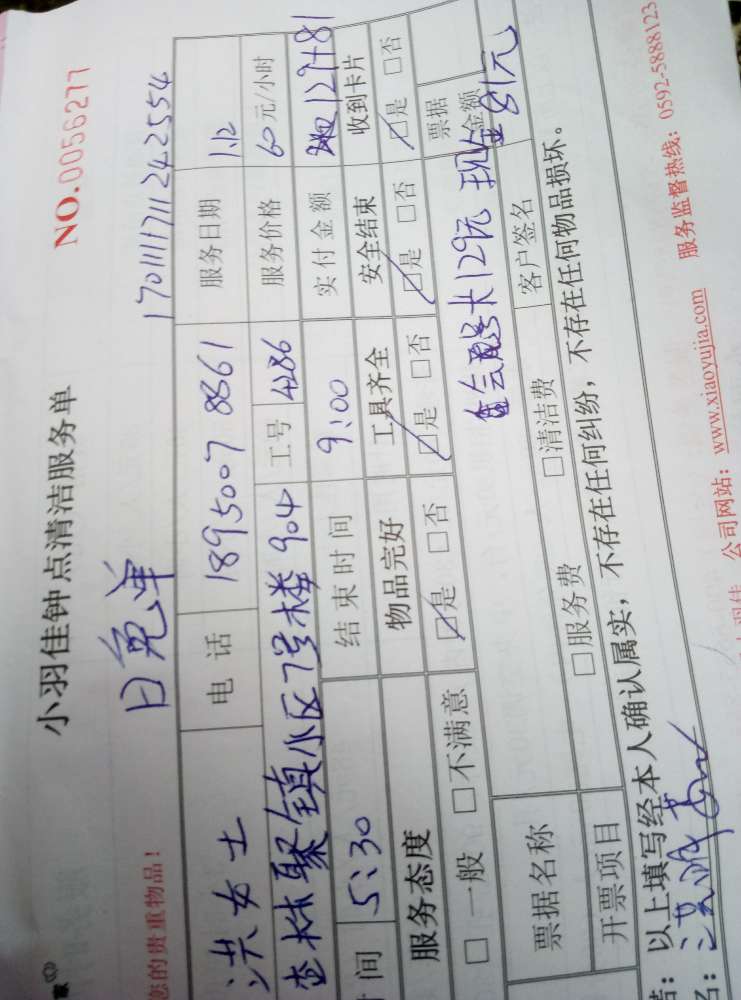 小羽佳钟点清洁服务单
NO.0056277
您的贵重物品！
日免单
1701111711242554
洪女士 电话 18950078361 服务日期 1.12
聚镇小区7号楼904 工号 4286 服务价格 60元/小时
时间 5:30 结束时间 9:00 实付金额 129+81
服务态度 物品完好 工具齐全 安全结束 收到卡片
□一般 □不满意 是 □否 是 □否 是 □否 是 □否
129元 现金 81元
票据名称 票据金额
开票项目 □服务费 □清洁费 客户签名
以上填写经本人确认属实，不存在任何纠纷，不存在任何物品损坏。
公司网站：www.xiaoyujia.com 服务监督热线：0592-5888123